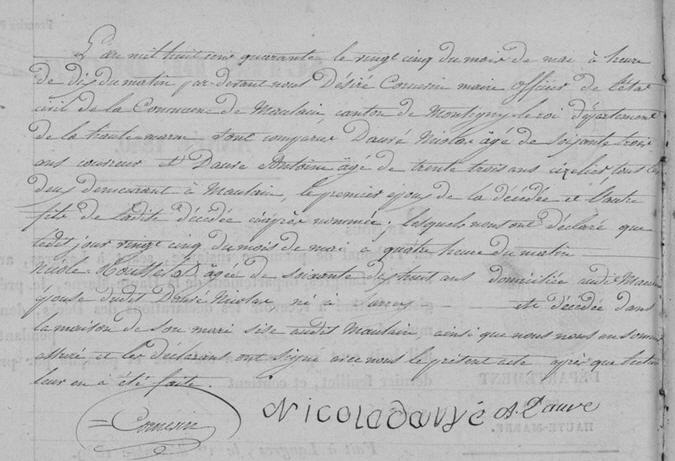 L'an mil huit cent quarante le vingt cinq du mois de mai à heure
de dix du matin par devant nous Désiré Cornevin maire officier de l'état
civil de la Commune de Maulain, canton de Montigny-le-roi département
de la haute-marne sont comparus Dauvé Nicolas âgé de soixante trois
ans couvreur et Dauvé Antoine âgé de trente trois ans tous les
deux demeurant à Maulain, le premier époux de la décédée et l'autre
fils de ladite décédée ci après nommée; lesquels nous ont déclaré que
ledit jour vingt cinq du mois de mai à quatre heure du matin
âgée de soixante dix huit ans domiciliée audit Maulain
épouse dudit Dauvé Nicolas né à est décédée dans
la maison de son mari sise audit Maulain, ainsi que nous nous en sommes
assuré et les déclarants ont signé avec nous le présent acte après que lecture
leur en a été faite.
Cornevin Nicola dauvé A. Dauvé
DÉPARTEMENT
HAUTE-MARNE